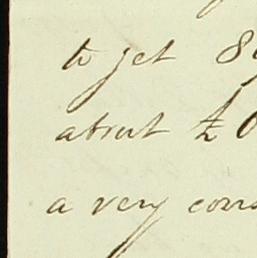 to get 8
about £
a very cons